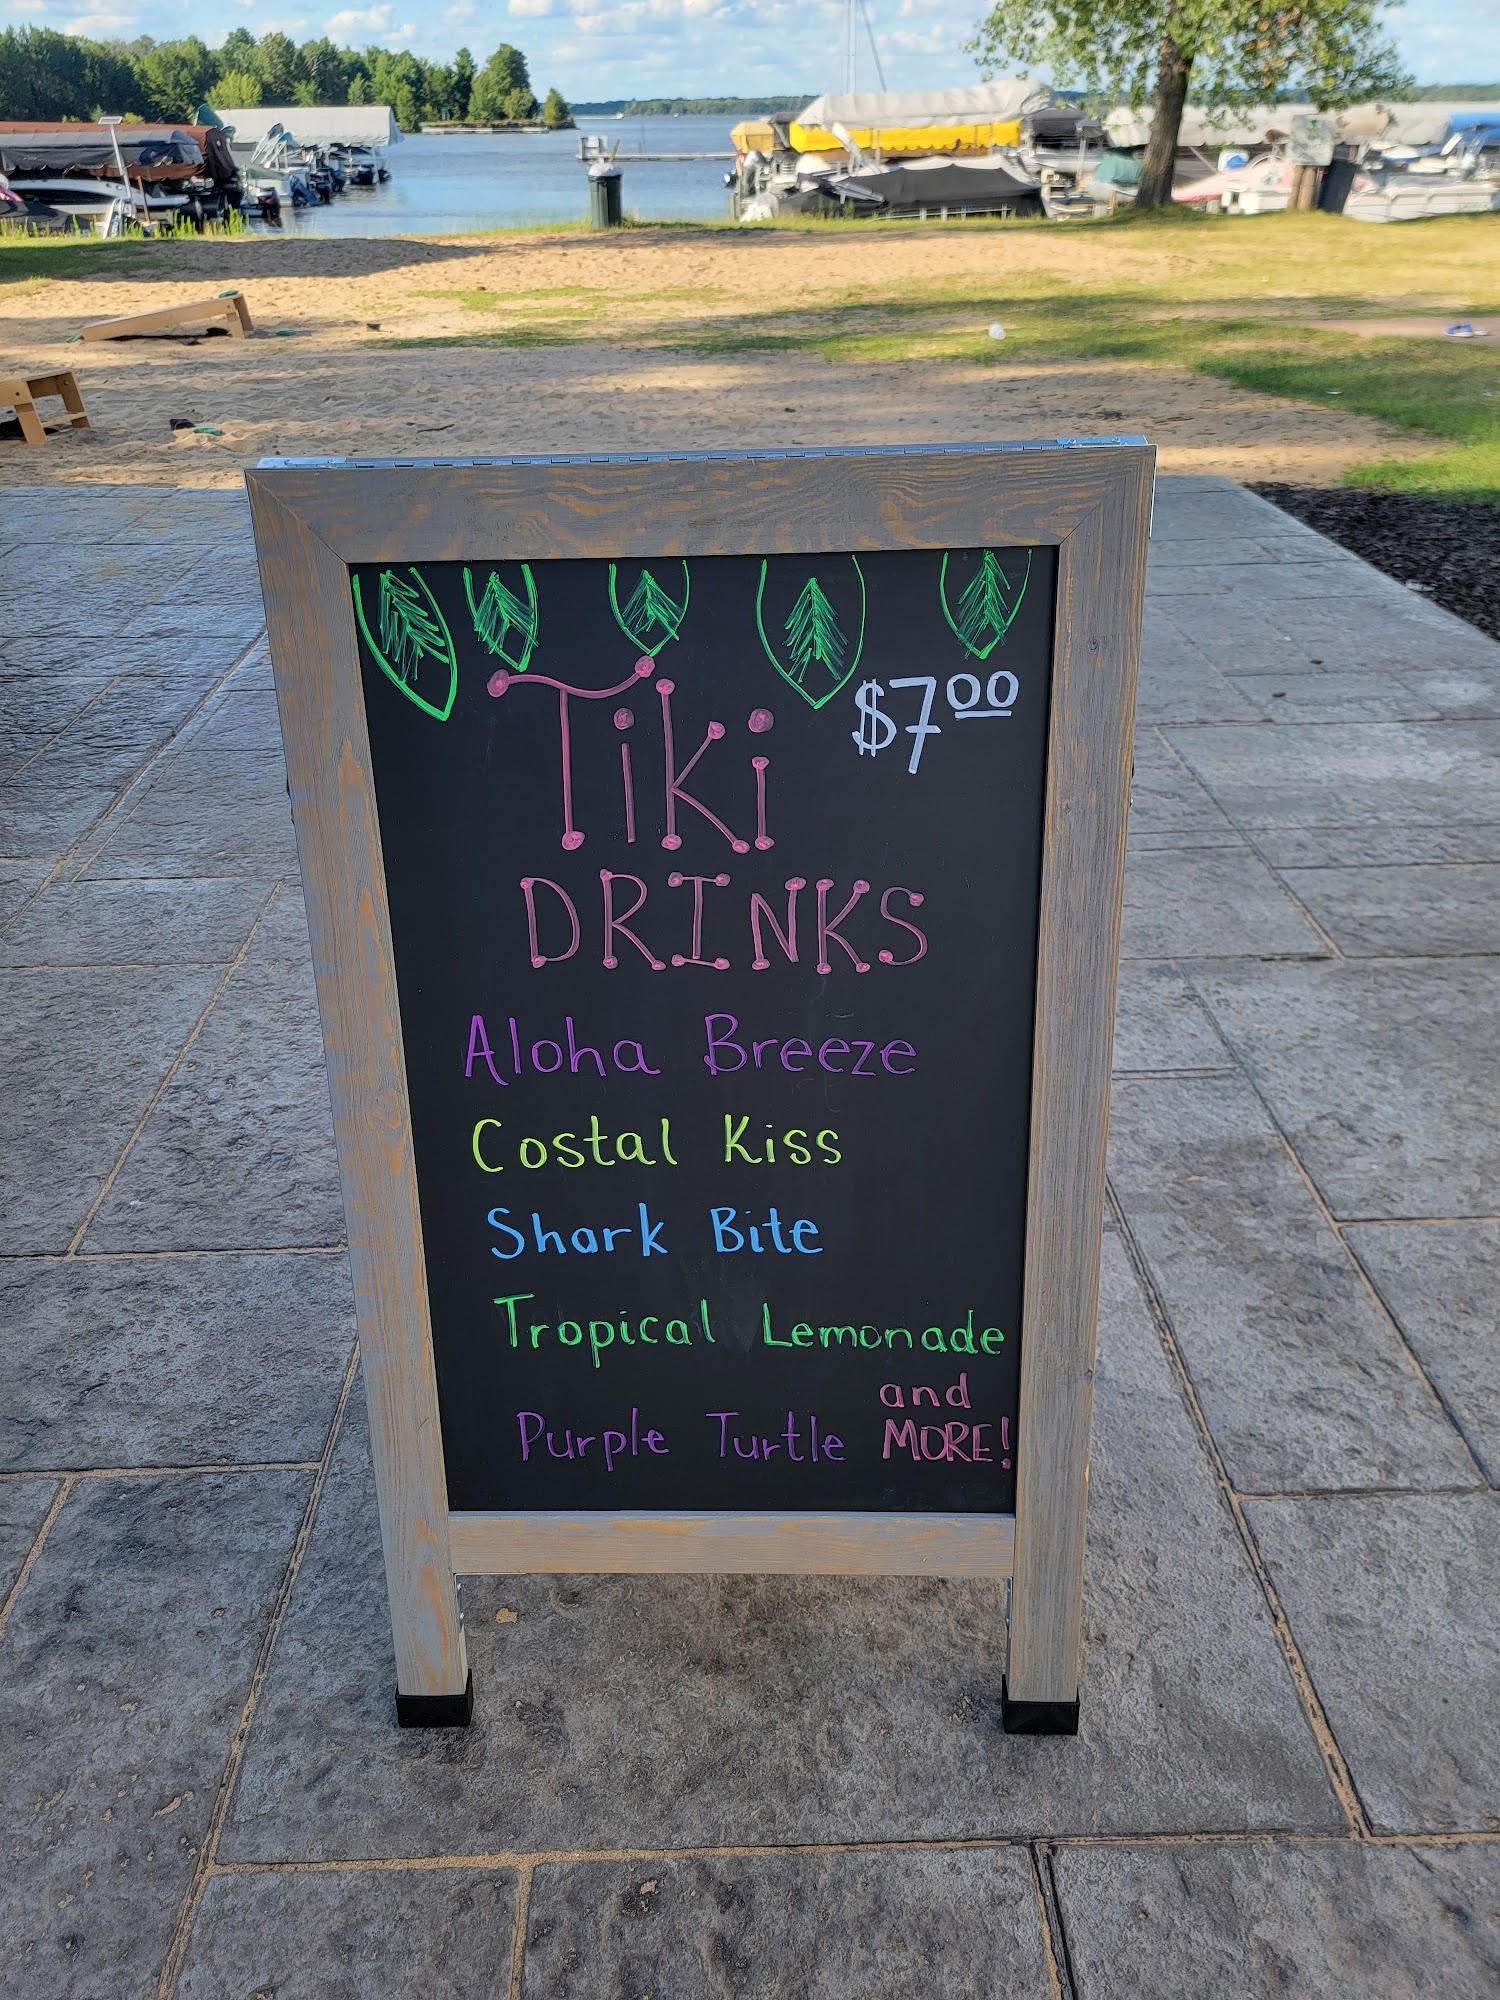 Tiki
$7.00
DRINKS
Aloha Breeze
Costal Kiss
Shark Bite
Tropical Lemonade
Purple Turtle and
MORE!